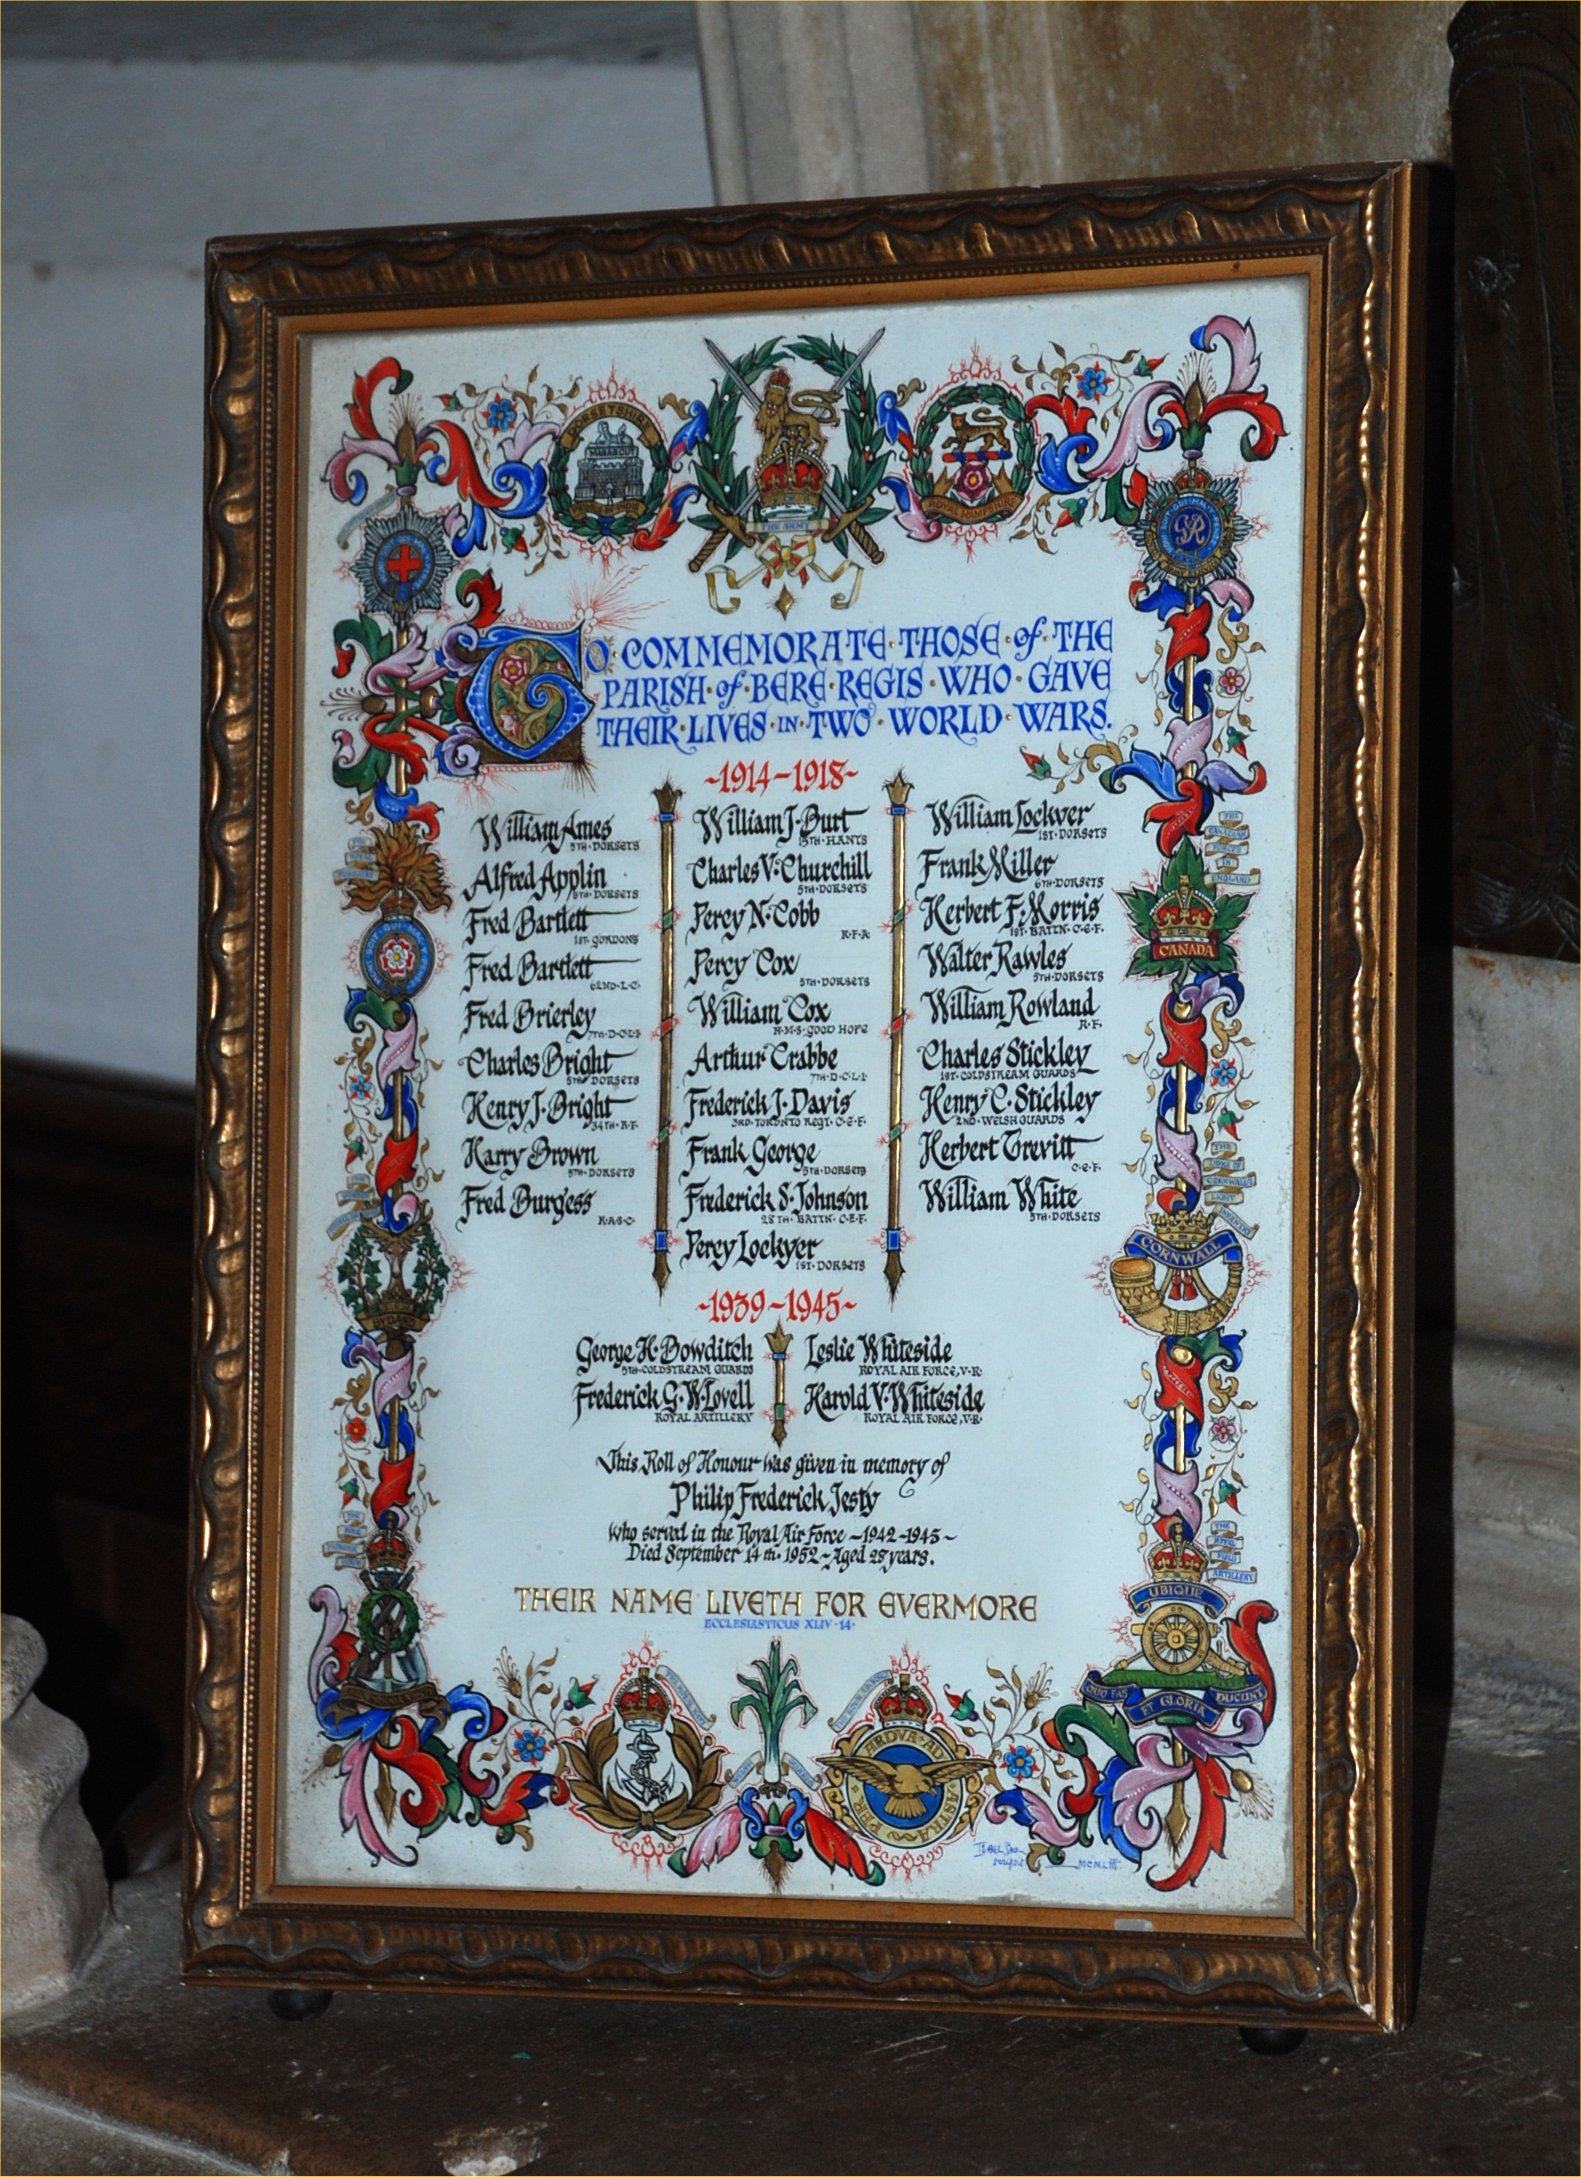 DORSETSHIRE
MARABOUT
THE ARMY
ROYAL HAMPSHIRE
TO COMMEMORATE THOSE of THE
PARISH of BERE REGIS WHO GAVE
THEIR LIVES IN TWO WORLD WARS.
~1914-1918~
William Ames
5TH·DORSETS
Alfred Applin
5TH·DORSETS
Fred Bartlett
1ST·GORDONS
Fred Bartlett
62ND·L·C·
Fred Brierley
7TH·D·C·L·I·
Charles Bright
5TH DORSETS
Henry J. Bright
34TH·R·F·
Harry Brown
5TH·DORSETS
Fred Burgess
R·A·S·C·
William J. Burt
15TH·HANTS
Charles V. Churchill
5TH·DORSETS
Percy N. Cobb
R·F·A·
Percy Cox
5TH·DORSETS
William Cox
H·M·S·GOOD HOPE
Arthur Crabbe
7TH·D·C·L·I·
Frederick J. Davis
3RD·TORONTO REGT. C·E·F·
Frank George
5TH·DORSETS
Frederick S. Johnson
28TH·BATTN. C·E·F·
Percy Lockyer
1ST·DORSETS
William Lockyer
1ST·DORSETS
Frank Miller
6TH·DORSETS
Herbert F. Morris
1ST·BATTN·C·E·F·
Walter Rawles
5TH·DORSETS
William Rowland
R·F·
Charles Stickley
1ST·COLDSTREAM GUARDS
Henry C. Stickley
2ND·WELSH GUARDS
Herbert Trevitt
C·E·F·
William White
5TH·DORSETS
CANADA
CORNWALL
~1939~1945~
George H. Bowditch
5TH·COLDSTREAM GUARDS
Frederick G. W. Lovell
ROYAL ARTILLERY
Leslie Whiteside
ROYAL AIR FORCE, V·R·
Harold V. Whiteside
ROYAL AIR FORCE, V·R·
This Roll of Honour was given in memory of
Philip Frederick Jesty
who served in the Royal Air Force ~1942-1945~
Died September 14 th. 1952~Aged 28 years.
THEIR NAME LIVETH FOR EVERMORE
ECCLESIASTICUS XLIV·14·
UBIQUE
QUO FAS ET GLORIA DUCUNT
PER ARDVA AD ASTRA
MCMLIII